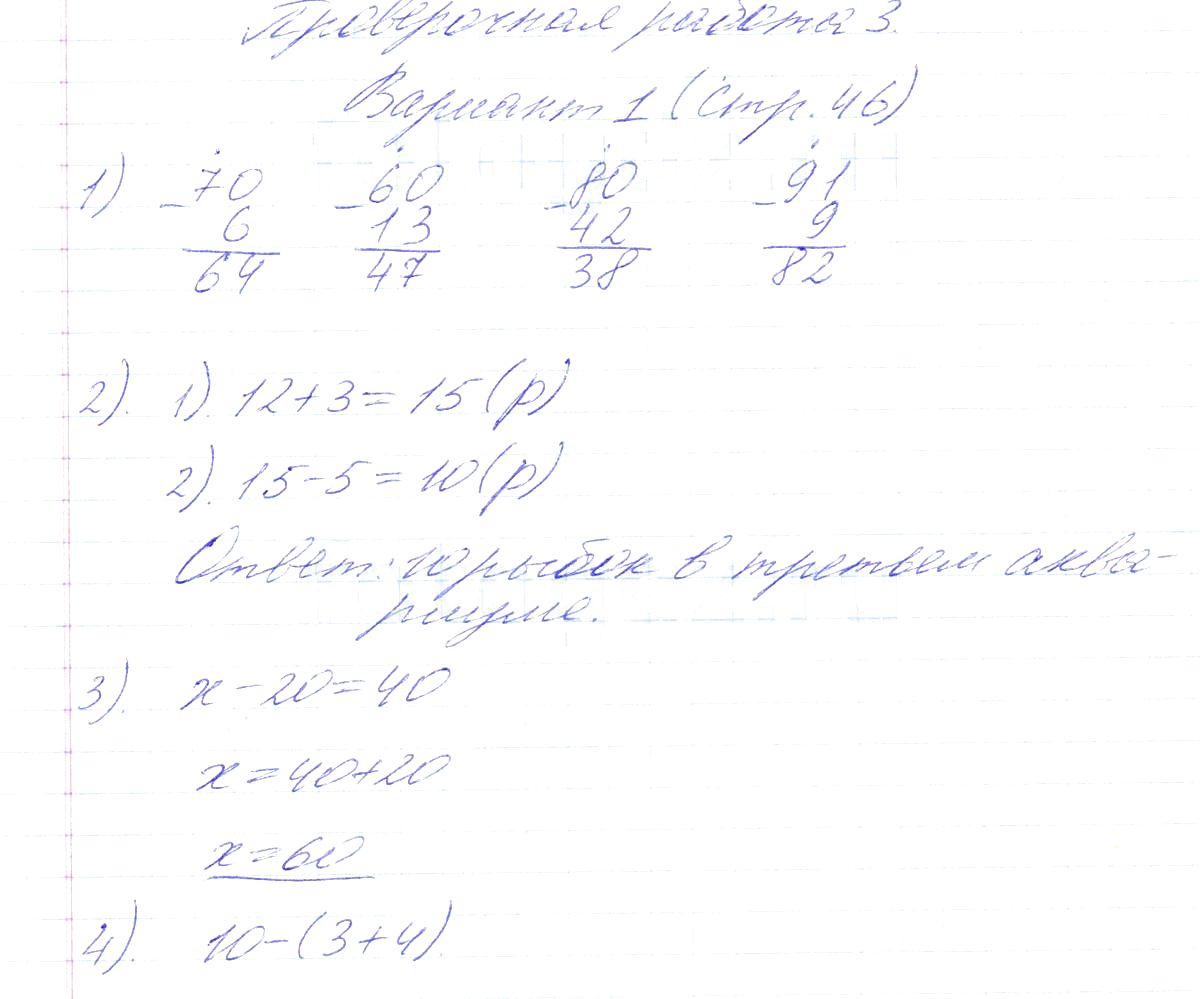 Проверочная работа 3.
Вариант 1 (стр. 46)
1) 70 60 80 91
- 6 - 13 - 42 - 9
64 47 38 82
2). 1). 12+3=15(р)
2). 15-5=10(р)
Ответ: 10 рыбок в третьем аква-
риуме.
3). х-20=40
х=40+20
х=60
4). 10-(3+4)